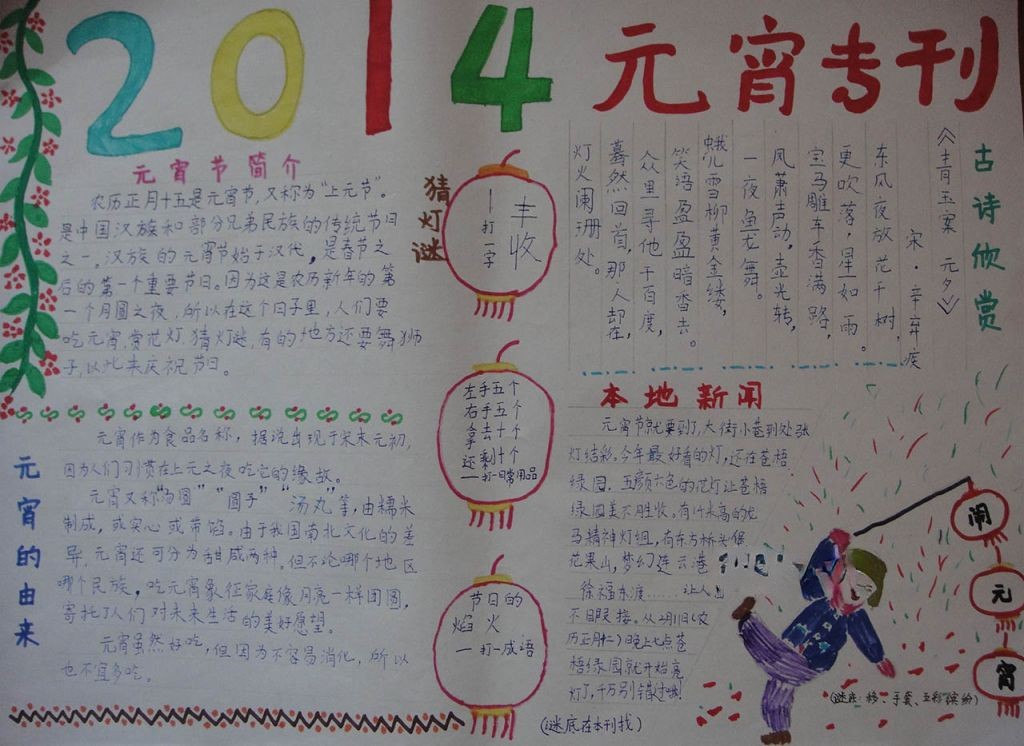 2014
元宵专刊
元宵节简介
农历正月十五是元宵节,又称为“上元节”。
是中国汉族和部分兄弟民族的传统节日
之一。汉族的元宵节始于汉代,是春节之
后的第一个重要节日。因为这是农历新年的第
一个月圆之夜,所以在这个日子里,人们要
吃元宵,赏花灯,猜灯谜,有的地方还要舞狮
子,以此来庆祝节日。
元宵的由来
元宵作为食品名称,据说出现于宋末元初,
因为人们习惯在上元之夜吃它的缘故。
元宵又称“汤圆”“圆子”“汤丸”等,由糯米
制成,或实心或带馅。由于我国南北文化的差
异,元宵还可分为甜咸两种。但不论哪个地区
哪个民族,吃元宵象征家庭像月亮一样团圆,
寄托了人们对未来生活的美好愿望。
元宵虽然好吃,但因为不容易消化,所以
也不宜多吃。
猜灯谜
丰收
一打一字
左手五个
右手五个
拿去十个
还剩十个
一打一日常用品
节日的
焰火
一打一成语
(谜底在本刊找)
古诗欣赏
《青玉案 元夕》
宋·辛弃疾
东风夜放花千树,
更吹落,星如雨。
宝马雕车香满路,
凤萧声动,壶光转,
一夜鱼龙舞。
蛾儿雪柳黄金缕,
笑语盈盈暗香去。
众里寻他千百度,
蓦然回首,那人却在,
灯火阑珊处。
本地新闻
元宵节就要到了,大街小巷到处张
灯结彩。今年最好看的灯,还在苍梧
绿园。五颜六色的花灯让苍梧
绿园美不胜收。有14米高的龙
马精神灯组,有东方桥头堡
花果山,梦幻连云港
徐福东渡……让人目
不暇接。从2月11日(农
历正月十二)晚上七点苍
梧绿园就开始亮
灯了,千万别错过哦!
闹
元
宵
(谜底:移、手套、五彩缤纷)